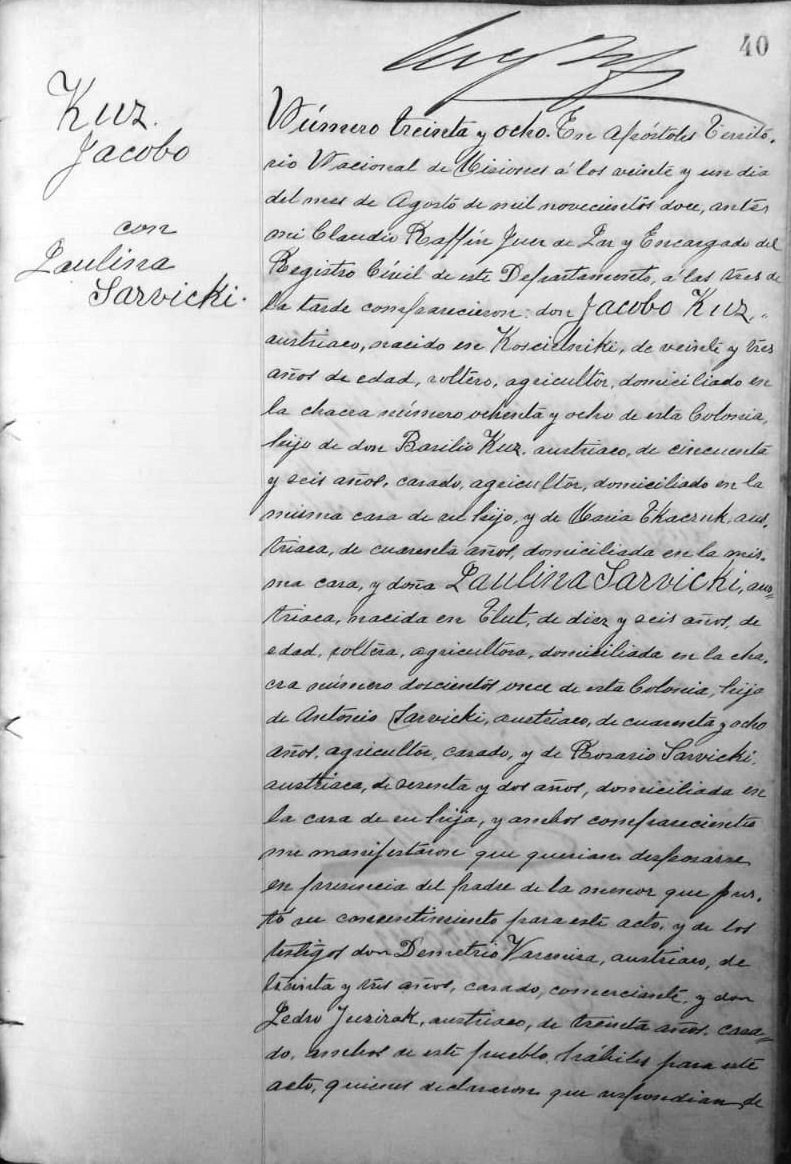 40
Kuz.
Jacobo
con
Paulina
Sarvicki.
Número treinta y ocho. En Apóstoles Territo.
rio Nacional de Misiones á los veinte y un dia
del mes de Agosto de mil novecientos doce, antes
mi Claudio Raffin Juez de Paz y Encargado del
Registro Civil de este Departamento, á las tres de
la tarde comparecieron: don Jacobo Kuz,
austriaco, nacido en Koscielniki, de veinte y tres
años de edad, soltero, agricultor, domiciliado en
la chacra número ochenta y ocho de esta Colonia,
hijo de don Basilio Kuz, austriaco, de cincuenta
y seis años, casado, agricultor, domiciliado en la
misma casa de su hijo, y de Maria Tkaczuk, aus.
triaca, de cuarenta años, domiciliada en la mis.
ma casa, y doña Paulina Sarvicki, aus=
triaca, nacida en Tlut, de diez y seis años, de
edad, soltera, agricultora, domiciliada en la cha.
cra número doscientos once de esta Colonia, hija
de Antonio Sarvicki, austriaco, de cuarenta y ocho
años, agricultor, casado, y de Rosario Sarvicki,
austriaca, de y dos años, domiciliada en
la casa de su hija, y ambos comparecientes
me manifestaron que querian desposarse
en presencia del padre de la menor que pres.
tó su concentimiento para este acto, y de los
testigos don Demetrio Varenisa, austriaco, de
treinta y tres años, casado, comerciante, y don
Pedro Juzirak, austriaco, de treinta años, casa=
do, ambos de este pueblo, hábiles para este
acto, quienes declararon que respondian de